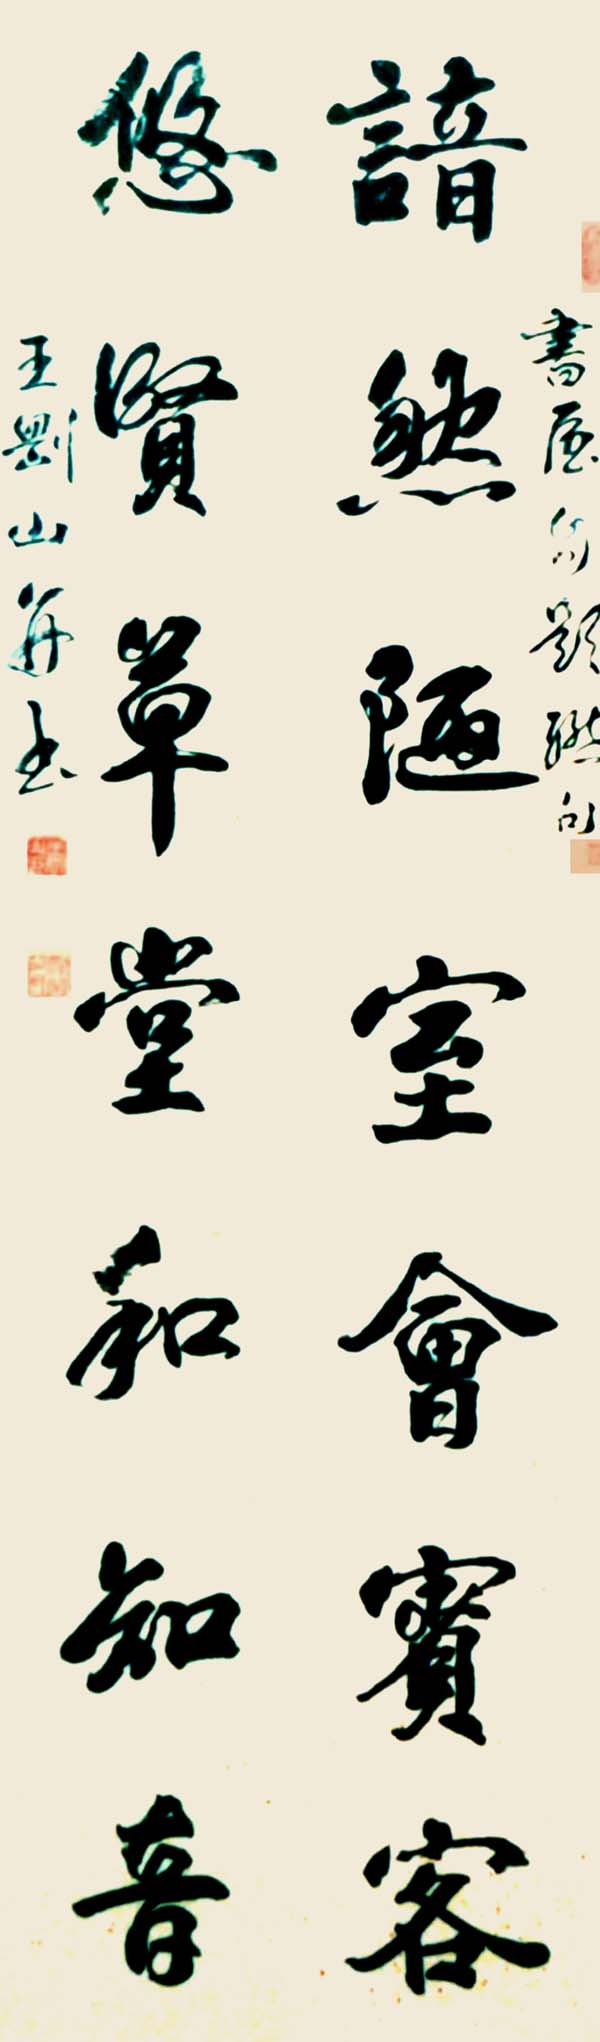 書屋自題聯句
諳然陋室會賓客
悠賢草堂和知音
王劉山并書